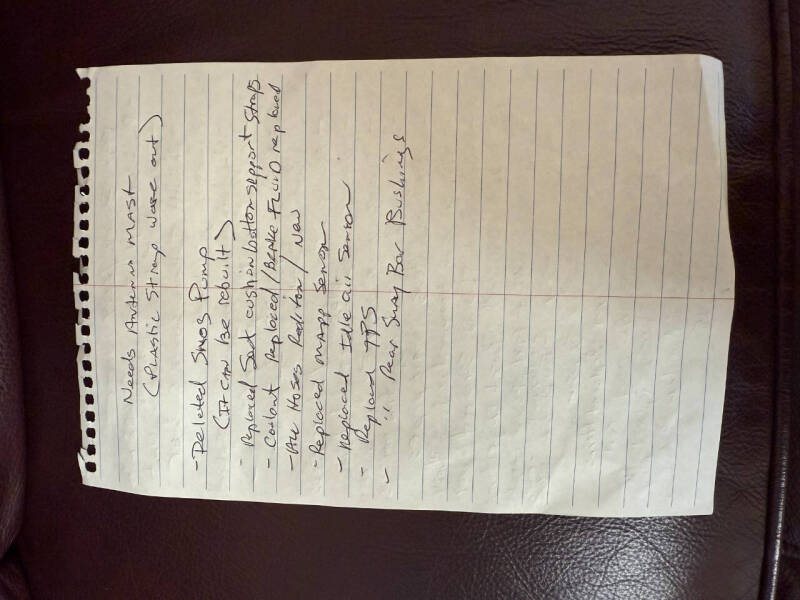 Needs Antenna MAST
(PLASTIC Strap wore out)
- Deleted Smog Pump
(IT CAN BE rebuilt)
- Replaced Seat cushion bottom support straps
- Coolant Replaced / BRAKE FLUID replaced
- ALL HOSES Raditor / New
- Replaced Mapp Sensor
- Replaced Idle air Sensor
- Replaced TPS
- " Rear Sway Bar Bushings